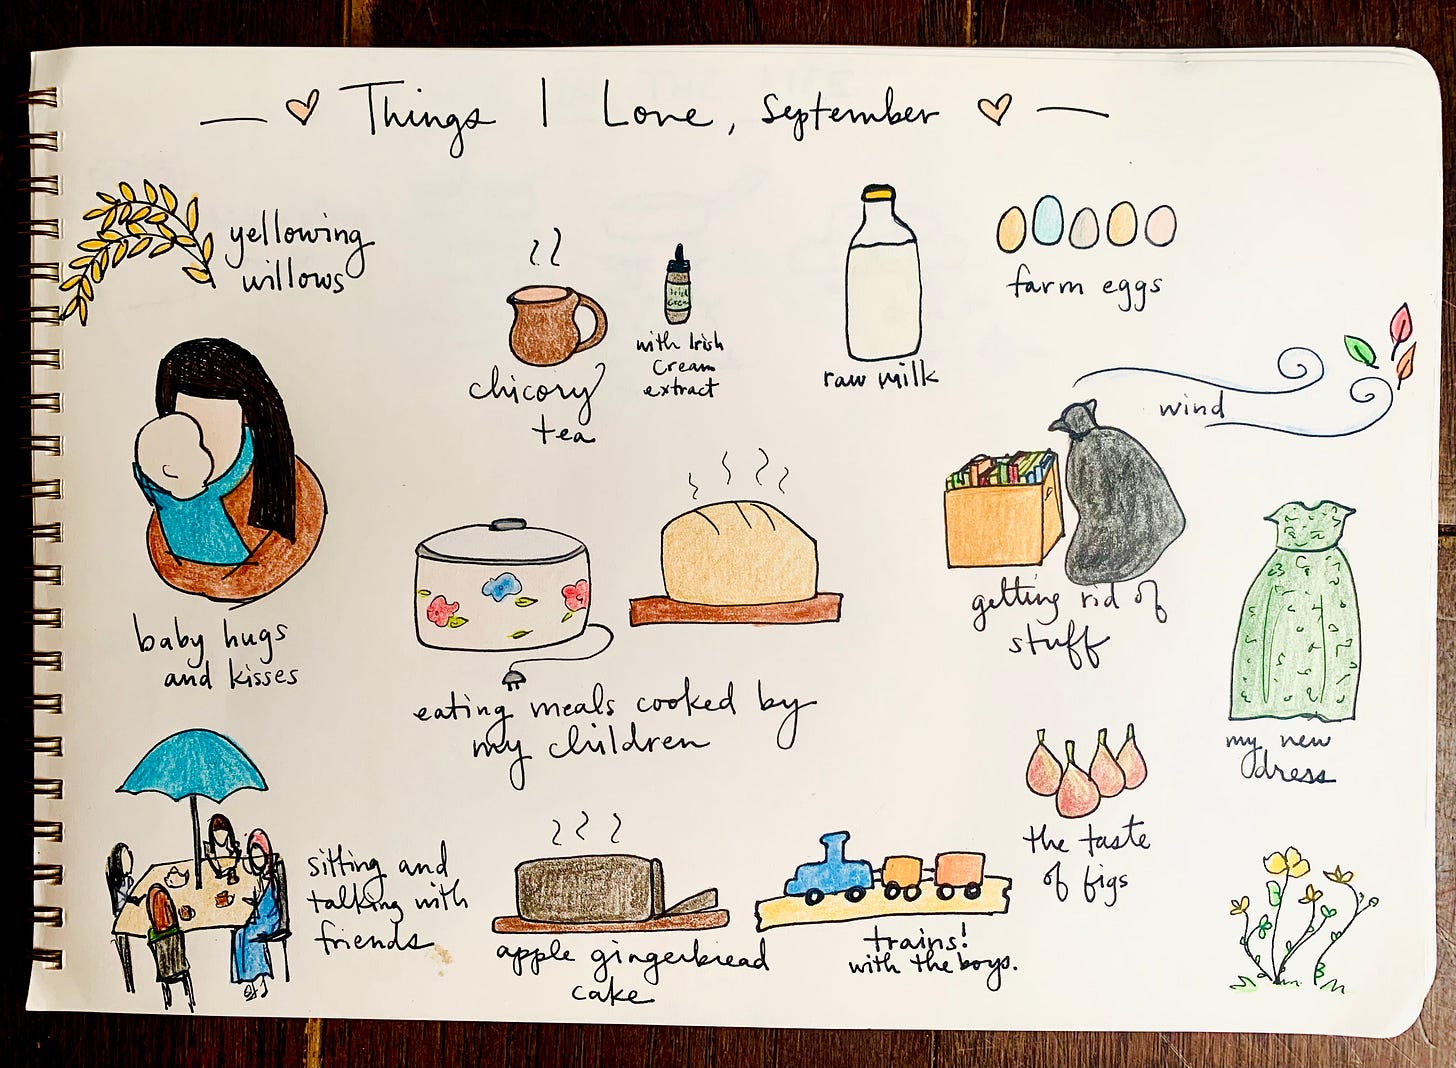 Things I Love, September
yellowing
willows
chicory
tea
with Irish
Cream
extract
raw milk
farm eggs
wind
baby hugs
and kisses
eating meals cooked by
my children
getting rid of
stuff
my new
dress
the taste
of figs
sitting and
talking with
friends
apple gingerbread
cake
trains!
with the boys.